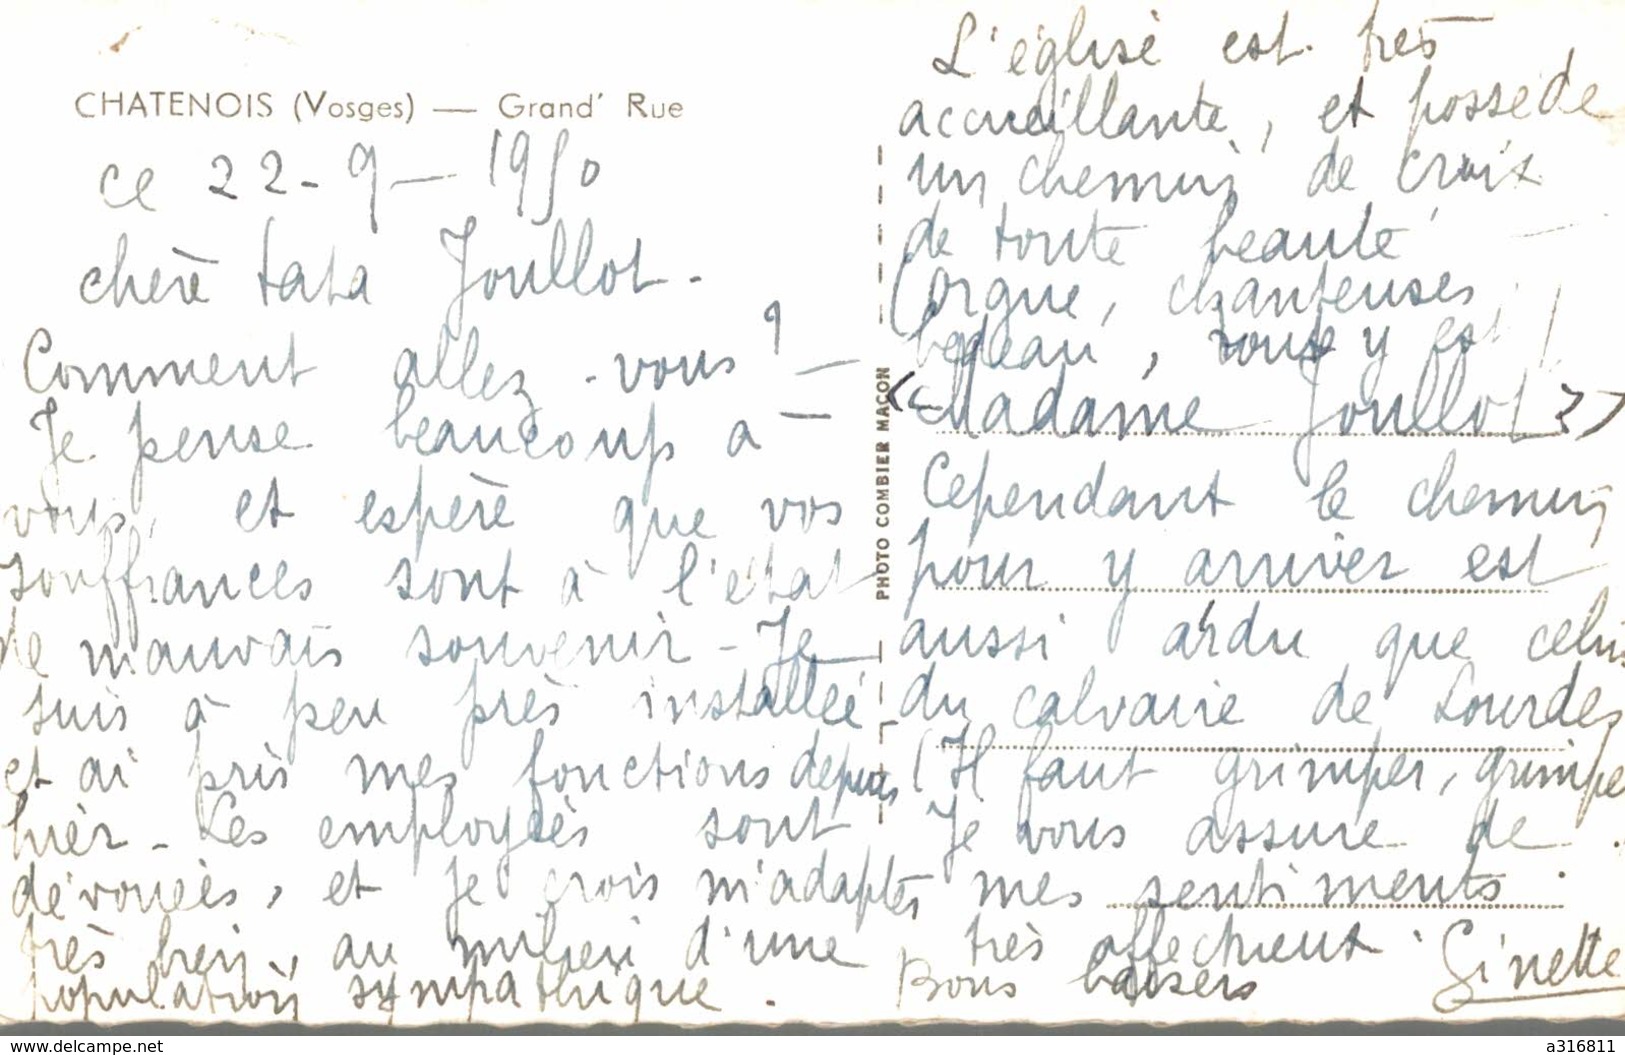 CHATENOIS (Vosges) — Grand' Rue
ce 22-9-1950
chère tata Joullot.
Comment allez-vous ? —
Je pense beaucoup à —
vous, et espère que vos
souffrances sont à l'état
de mauvais souvenir - Je
suis à peu près installée
et ai pris mes fonctions depuis
hier - Les employées sont
dévouées, et je crois m'adapter
très bien, au milieu d'une
population sympathique.
PHOTO COMBIER MACON
L'église est très
accueillante, et possède
un chemin de croix
de toute beauté
(orgue, chanteuses
bedeau, tout y est
« Madame Joullot »)
Cependant le chemin
pour y arriver est
aussi ardu que celui
du calvaire de Lourdes
(Il faut grimper, grimper
Je vous assure de
mes sentiments
très affectueux.
Bons baisers Ginette
www.delcampe.net
a316811